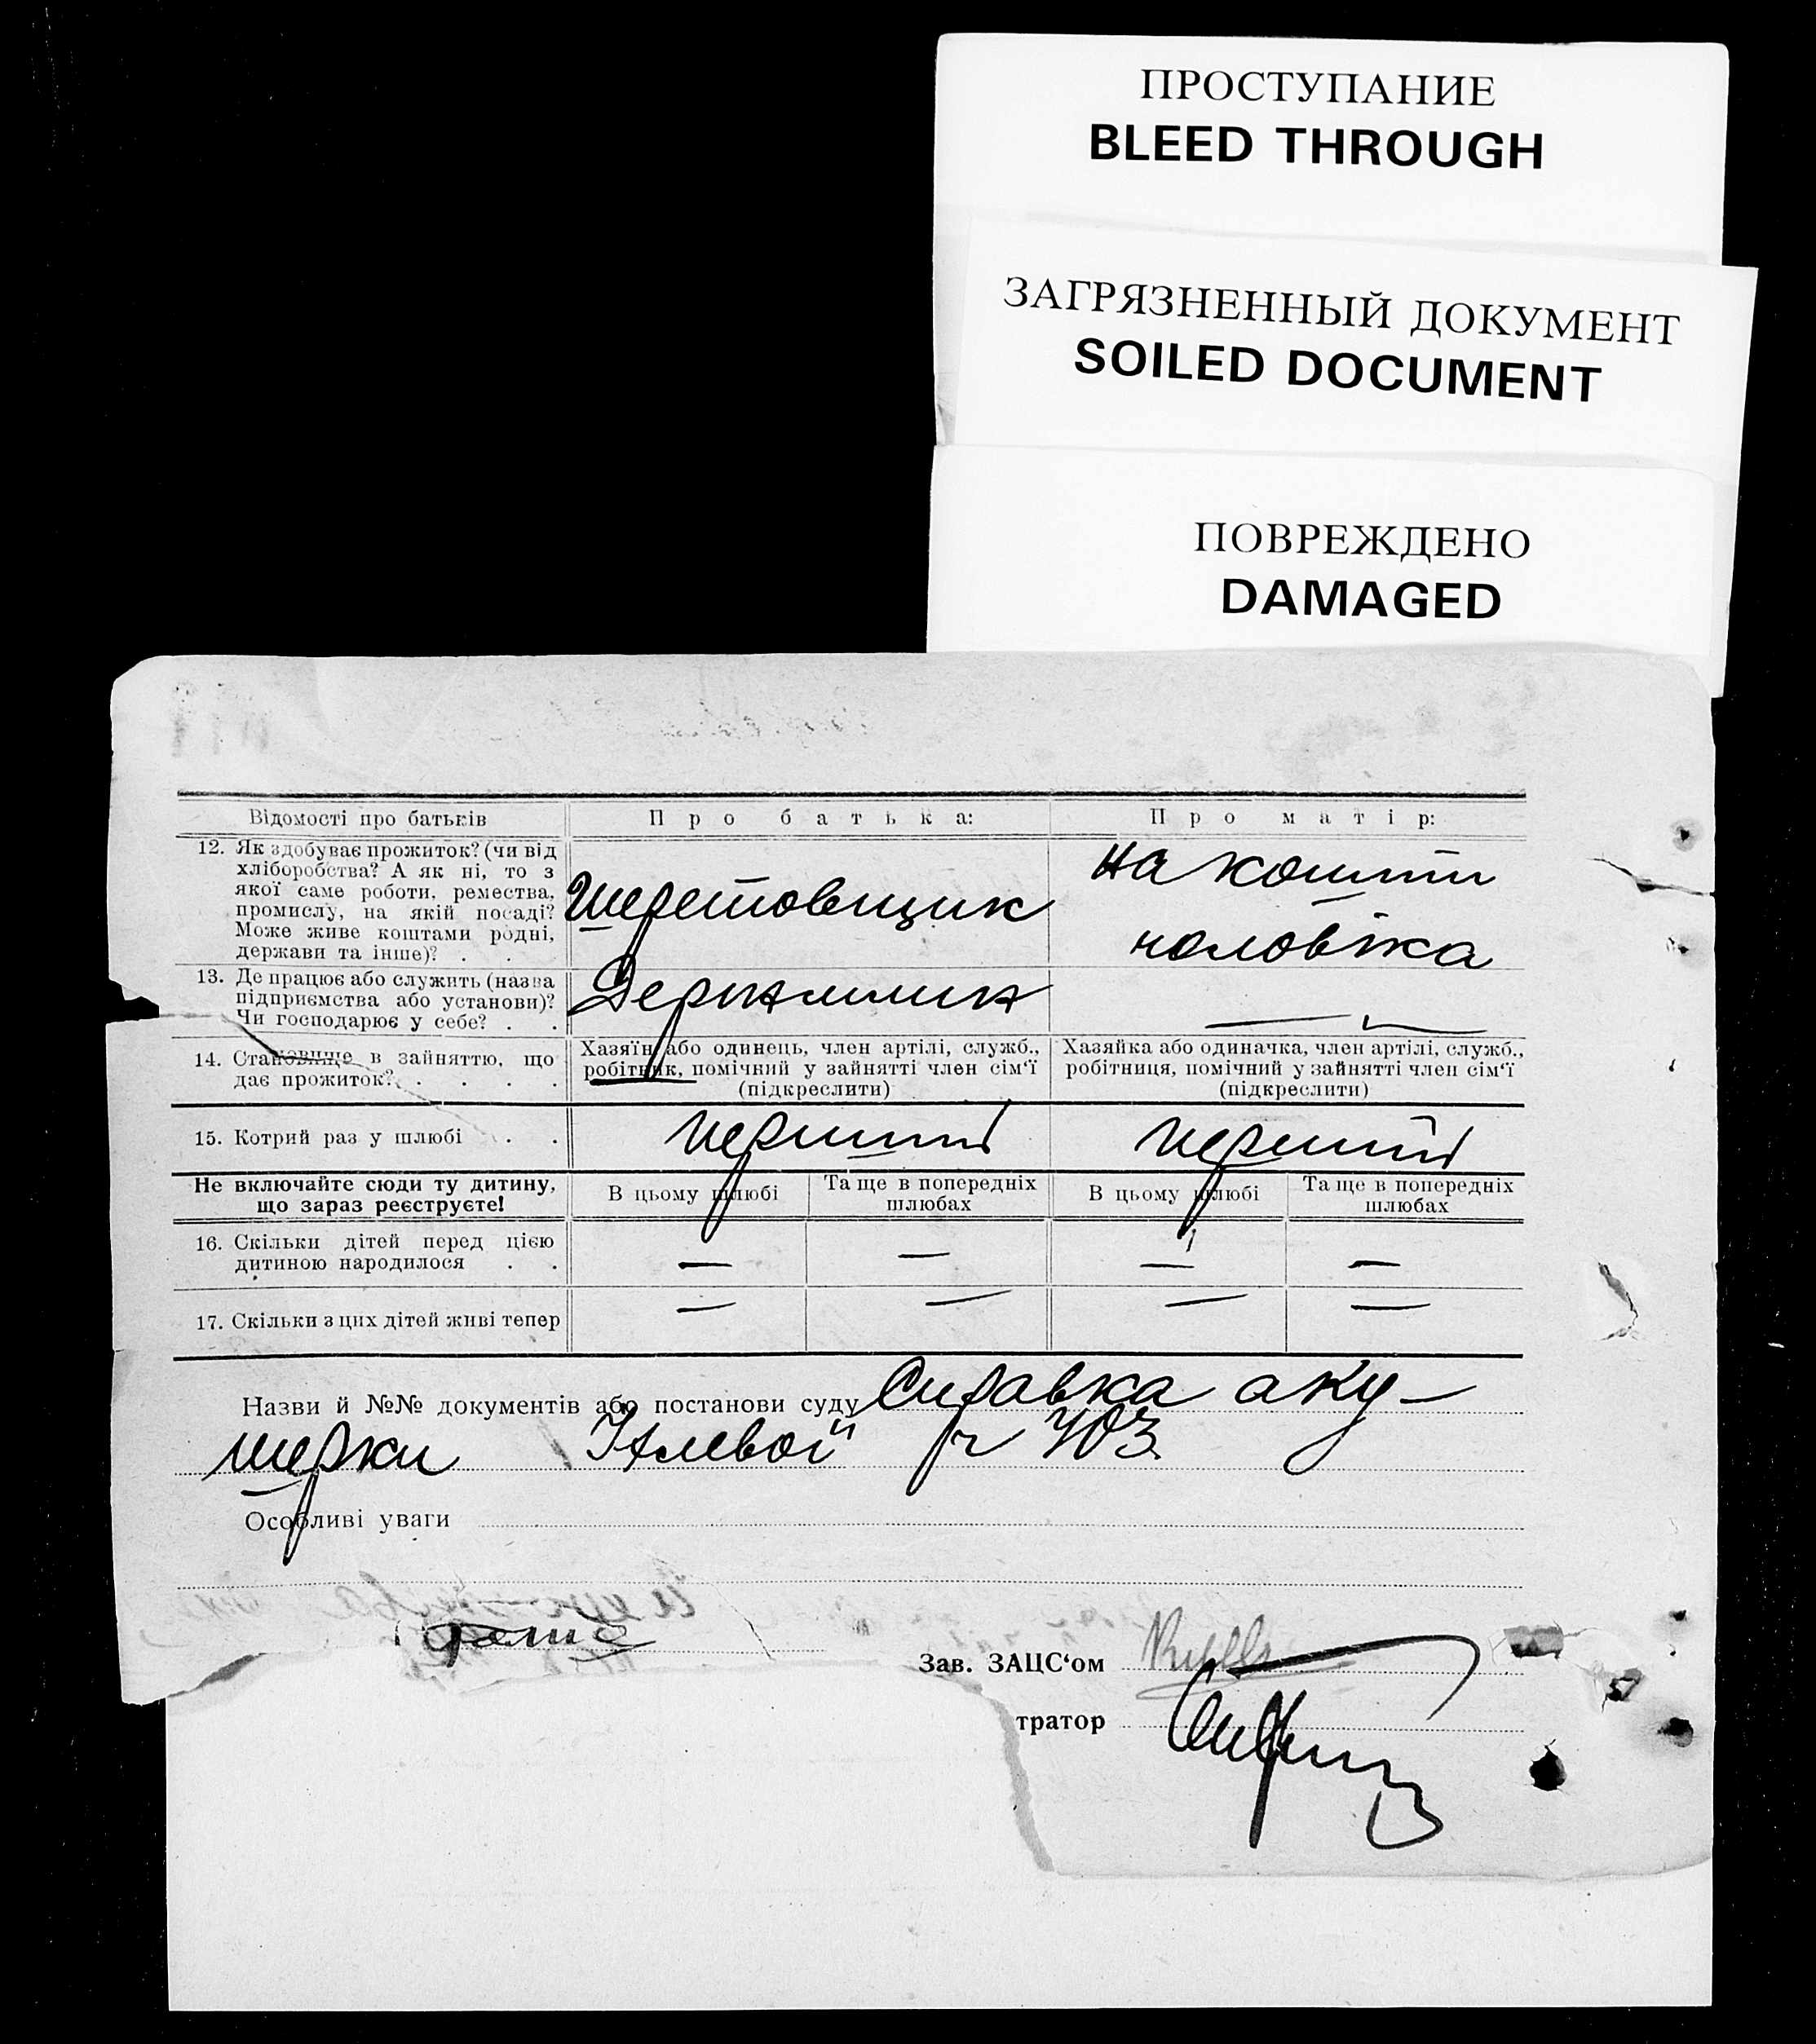 ПРОСТУПАНИЕ
BLEED THROUGH
ЗАГРЯЗНЕННЫЙ ДОКУМЕНТ
SOILED DOCUMENT
ПОВРЕЖДЕНО
DAMAGED
Відомості про батьків
Про батька:
Про матір:
12. Як здобуває прожиток? (чи від
хліборобства? А як ні, то з
якої саме роботи, ремества,
промислу, на якій посаді?
Може живе коштами рідні,
держави та інше)? . .
Шеретовщик
на кошти
чоловіка
13. Де працює або служить (назва
підприємства або установи)?
Чи господарює у себе? . .
Держмлин
—
14. Становище в зайняттю, що
дає прожиток? . . . .
Хазяїн або одинець, член артілі, служб.,
робітник, помічний у зайнятті член сім‘ї
(підкреслити)
Хазяйка або одиначка, член артілі, служб.,
робітниця, помічний у зайнятті член сім‘ї
(підкреслити)
15. Котрий раз у шлюбі . .
перший
перший
Не включайте сюди ту дитину,
що зараз реєструєте!
В цьому шлюбі
Та ще в попередніх
шлюбах
В цьому шлюбі
Та ще в попередніх
шлюбах
16. Скільки дітей перед цією
дитиною народилося . .
— — — —
17. Скільки з цих дітей живі тепер
— — — —
Назви й №№ документів або постанови суду Справка аку-
шерки
Особливі уваги
Зав. ЗАЦС‘ом
тратор